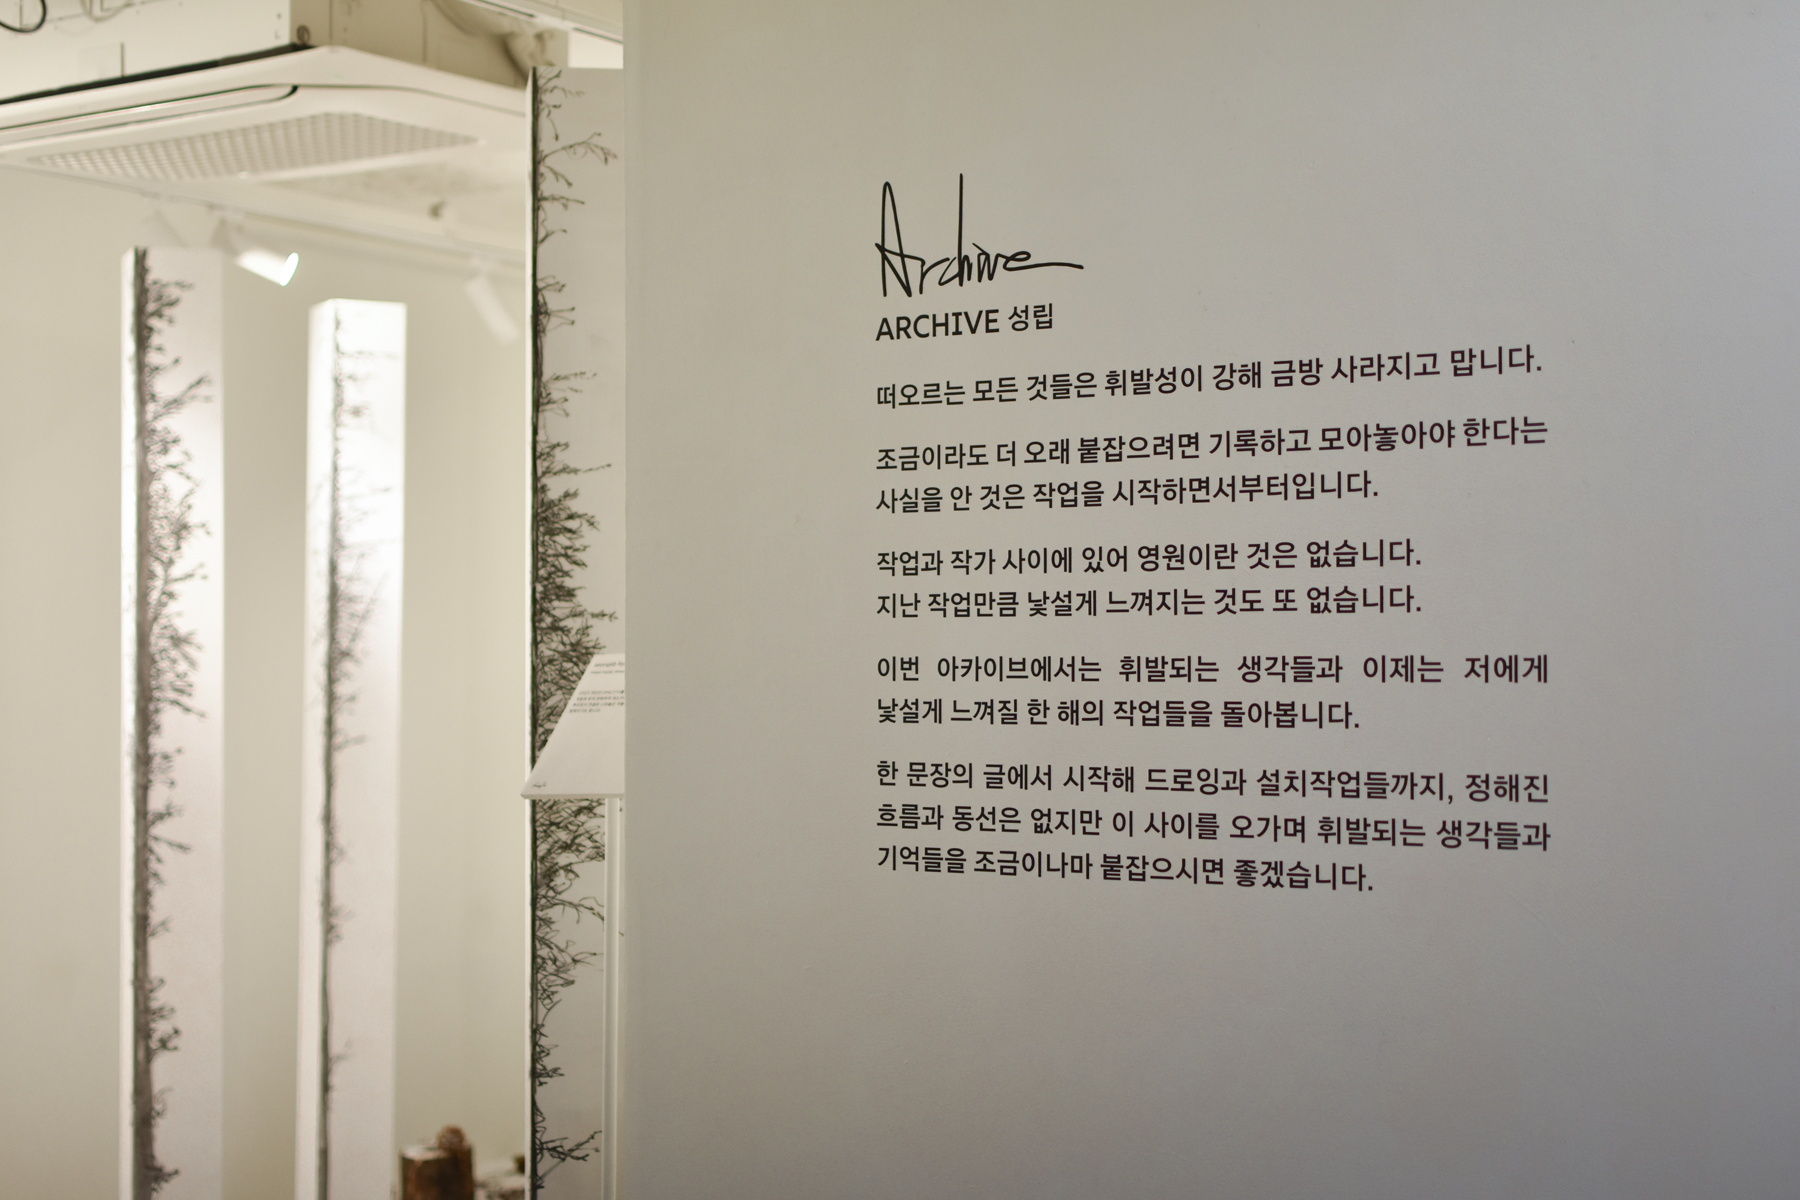 Archive
ARCHIVE 성립
떠오르는 모든 것들은 휘발성이 강해 금방 사라지고 맙니다.
조금이라도 더 오래 붙잡으려면 기록하고 모아놓아야 한다는
사실을 안 것은 작업을 시작하면서부터입니다.
작업과 작가 사이에 있어 영원이란 것은 없습니다.
지난 작업만큼 낯설게 느껴지는 것도 또 없습니다.
이번 아카이브에서는 휘발되는 생각들과 이제는 저에게
낯설게 느껴질 한 해의 작업들을 돌아봅니다.
한 문장의 글에서 시작해 드로잉과 설치작업들까지, 정해진
흐름과 동선은 없지만 이 사이를 오가며 휘발되는 생각들과
기억들을 조금이나마 붙잡으시면 좋겠습니다.